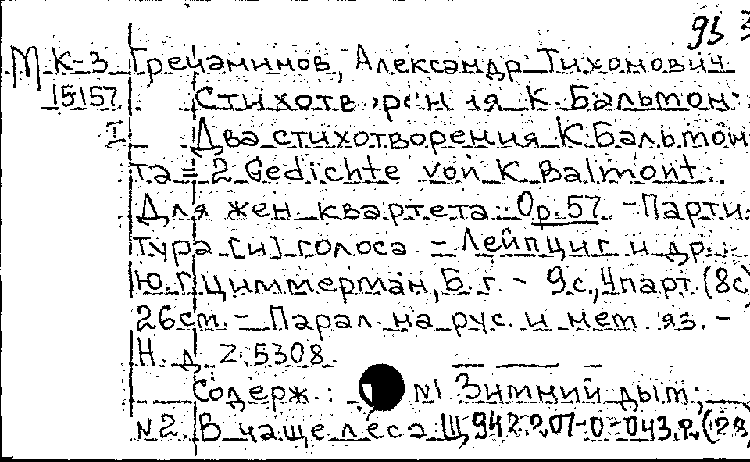 93 3
М К-3 Гречанинов, Александр Тихонович
15157 Стихотворения К. Бальмон
I Два стихотворения К. Бальмон
та = 2 Gedichte von K. Balmont.
Для жен. квартета. Op. 57. - Парти
тура [и] голоса. - Лейпциг и др.:
Ю.Г. Циммерман, Б.г. - 9 с., 4 парт. (8с)
26 см. - Парал. на рус. и нем. яз. -
Н. д. Z. 5308.
Содерж.: №1 Зимний дым;
№2 В чаще леса. Щ942.2.07-0-043.2.(28)